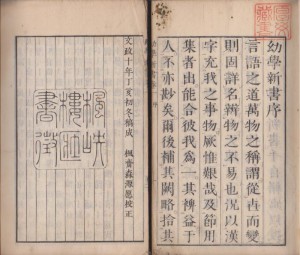 幼學新書序
言語之道萬物之稱謂從古而變
則固詳名辨物之不易也況以漢
字充我之事物厥惟艱哉及節用
集出能合我與彼而爲一其裨益于
人不亦尠矣爾後補其闕略拾其
文政十年丁亥初冬稿成
楓齋森源愿校正